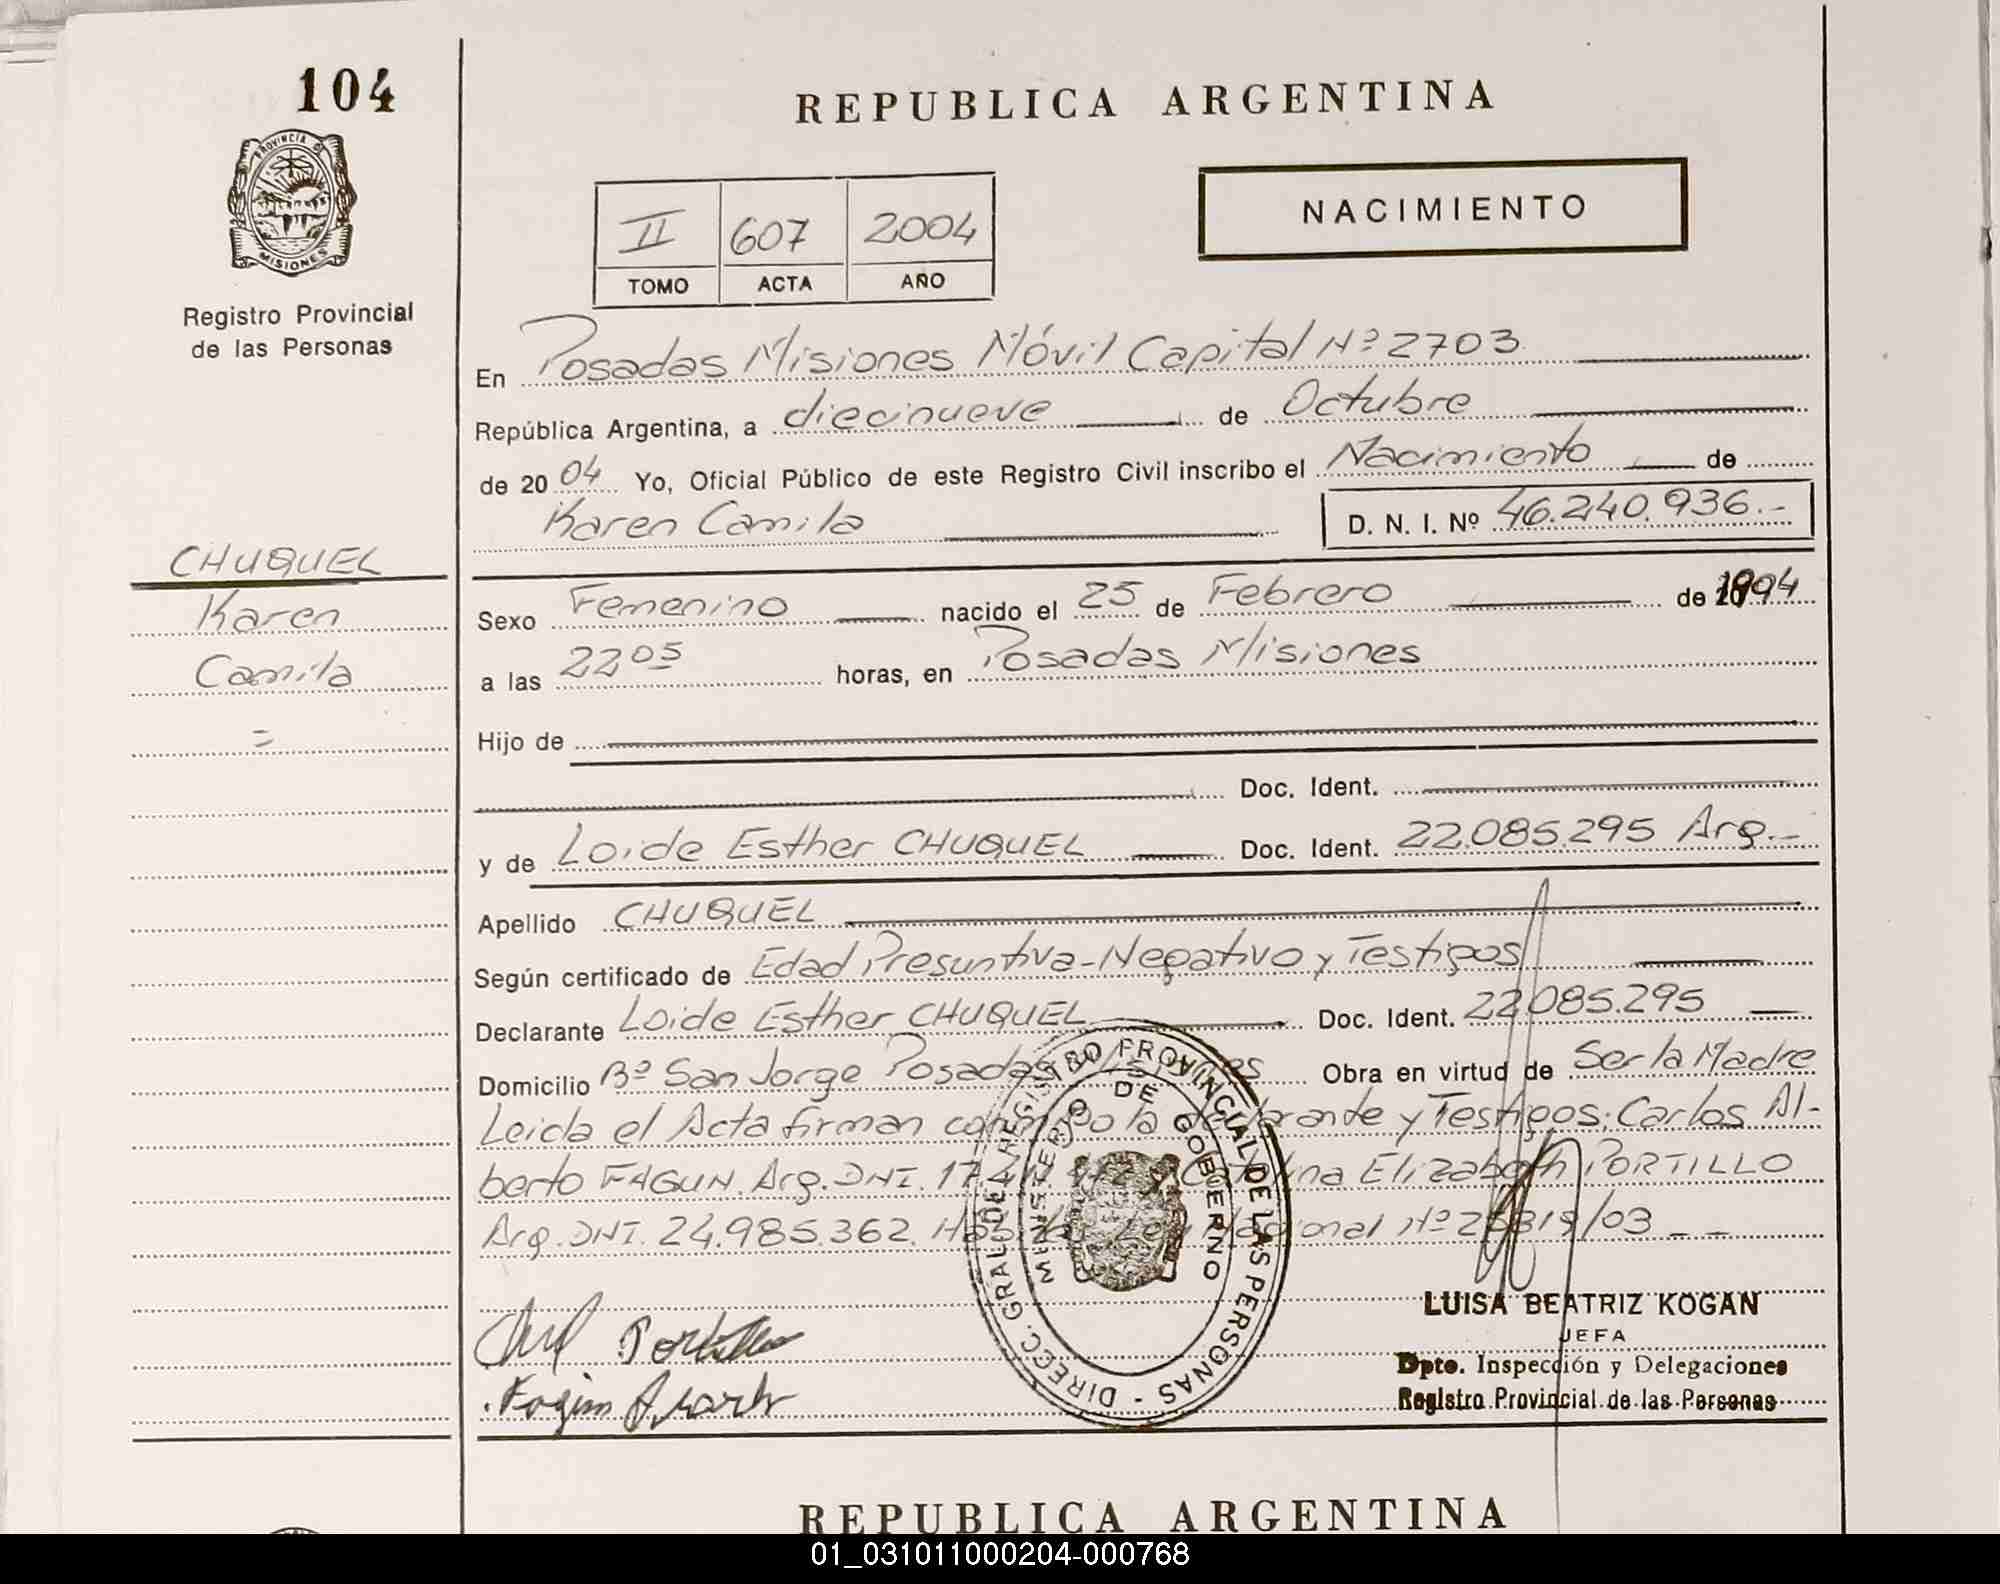 104
PROVINCIA DE
MISIONES
Registro Provincial
de las Personas
CHUQUEL
Karen
Camila
=
REPUBLICA ARGENTINA
II 607 2004
TOMO ACTA AÑO
NACIMIENTO
En Posadas Misiones Móvil Capital Nº 2703
República Argentina, a diecinueve de Octubre
de 2004 Yo, Oficial Público de este Registro Civil inscribo el Nacimiento de
Karen Camila D. N. I. Nº 46.240.936.-
Sexo Femenino nacido el 25 de Febrero de 1994
a las 22 05 horas, en Posadas Misiones
Hijo de
Doc. Ident.
y de Loide Esther CHUQUEL Doc. Ident. 22.085.295 Arg.-
Apellido CHUQUEL
Según certificado de Edad Presuntiva-Negativo y Testigos
Declarante Loide Esther CHUQUEL Doc. Ident. 22.085.295
Domicilio Bº San Jorge Posadas Obra en virtud de Ser la Madre
Leida el Acta firman conmigo la declarante y Testigos: Carlos Al-
berto FAGUN. Arg. DNI. 17. Elizabeth PORTILLO
Arg. DNI. 24.985.362. Ley Nacional Nº 25819/03 - -
DIRECC. GRAL. DEL REGISTRO PROVINCIAL DE LAS PERSONAS -
MINISTERIO DE GOBIERNO
Portillo
LUISA BEATRIZ KOGAN
JEFA
Dpto. Inspección y Delegaciones
Registro Provincial de las Personas
REPUBLICA ARGENTINA
01_031011000204-000768